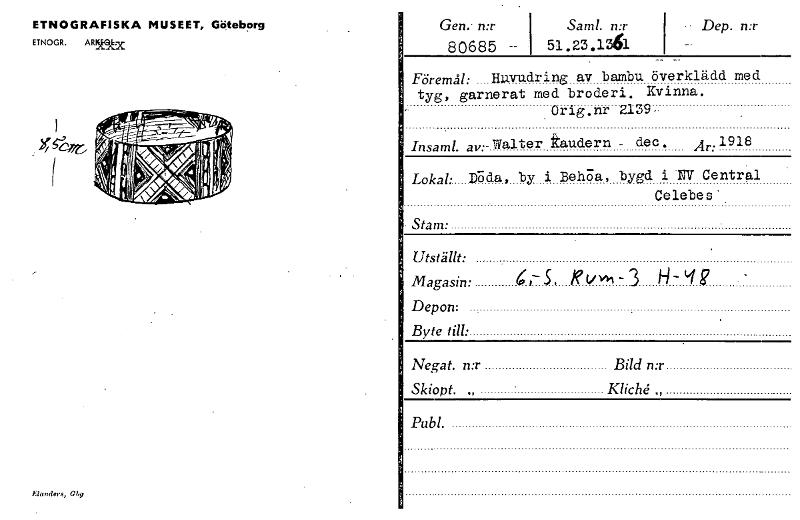 ETNOGRAFISKA MUSEET, Göteborg
ETNOGR. ARKEOL.
8,5cm
Elanders, Gbg
Gen. n:r Saml. n:r Dep. n:r
80685 - 51.23.1361 -
Föremål: Huvudring av bambu överklädd med
tyg, garnerat med broderi. Kvinna.
Orig.nr 2139
Insaml. av: Walter Kaudern - dec. År: 1918
Lokal: Dōda, by i Behōa, bygd i NV Central
Celebes
Stam:
Utställt:
Magasin: 6,-S. Rum-3 H-48
Depon:
Byte till:
Negat. n:r Bild n:r
Skiopt. „ Kliché „
Publ.